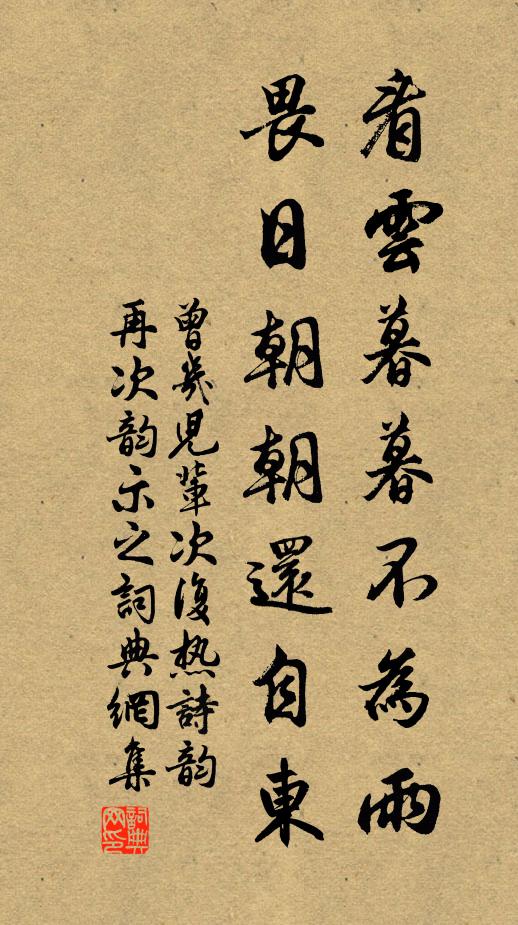 看雲暮暮不為雨
畏日朝朝還自東
曾幾兒輩次復熱詩韵
再次韵示之詞典網集
詞典网印